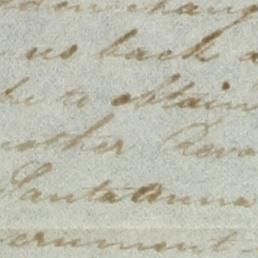 us back a
to obtain
nother Revo
Santa Anna
ernment